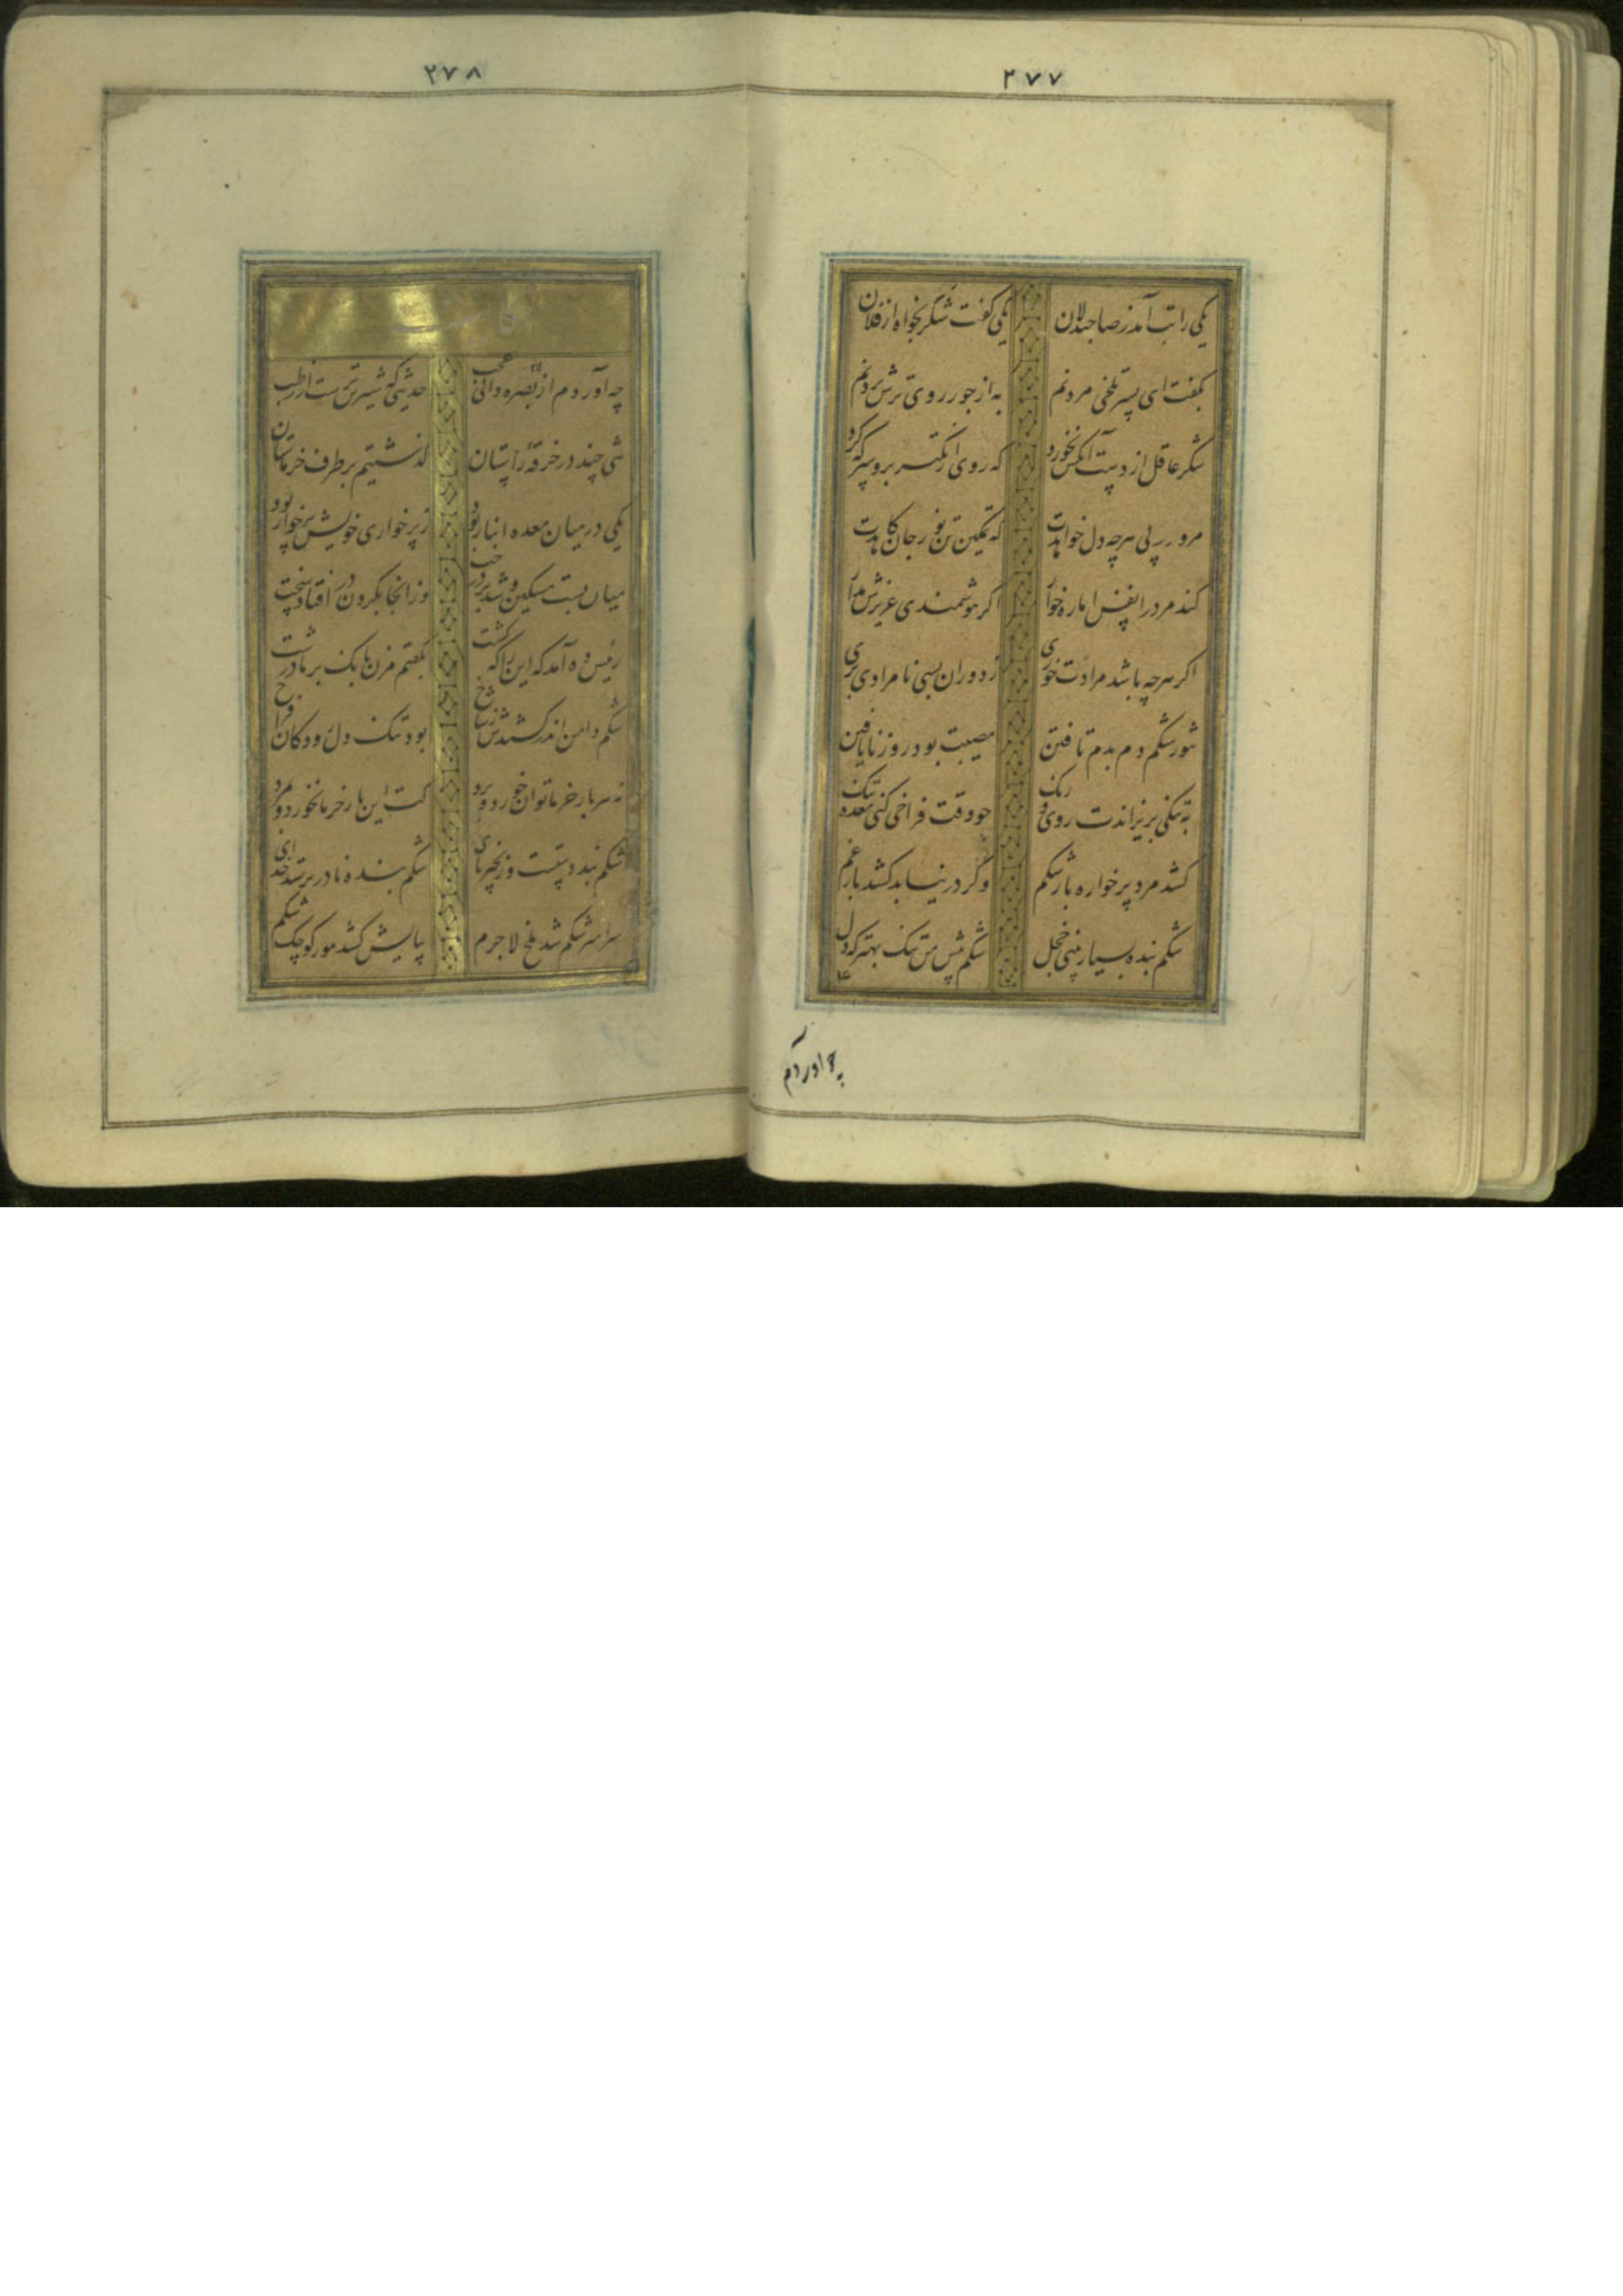 ۲۷۷
یکی را تب آمد ز صاحبدلان یکی گفت شکر بخواه از فلان
بگفت ای پسر تلخی مردنم به از جور روی ترش بردنم
شکر عاقل از دست آنکس نخورد که روی از تکبر برو سرکه کرد
مرو در پی هرچه دل خواهدت که تمکین تن نور جان کاهدت
کند مرد را نفس اماره خوار اگر هوشمندی عزیزش مدار
اگر هرچه باشد مرادت خوری ز دوران بسی نامرادی بری
شکم دم بدم تافتن مصیبت بود روز نایافتن
به تنگی بریزاندت روی و رنگ چو وقت فراخی کنی معده تنگ
کشد مرد پرخواره بار شکم وگر در نیابد کشد بار غم
شکم بنده بسیار بینی خجل شکم پیش من تنگ بهتر که دل
چه اوردم
۲۷۸
چه آوردم از بصره دانی عجب حدیثی که شیرین‌ترست از رطب
تنی چند در خرقه راستان گذشتیم بر طرف خرماستان
یکی در میان معده انبار بود ز پرخواری خویش بس خوار بود
میان بست مسکین و شد بر درخت وز آنجا بگردن در افتاد سخت
رئیس ده آمد که این را که کشت بگفتم مزن بانگ بر ما درشت
شکم دامن اندر کشیدش ز شاخ بود تنگ دل رودکان فراخ
نه هر بار خرما توان خورد و برد لت این بار خرما نخورد و مرد
شکم بند دستست و زنجیر پای شکم بنده نادر پرستد خدای
سراسر شکم شد ملخ لاجرم بپایش کشد مور کوچک شکم